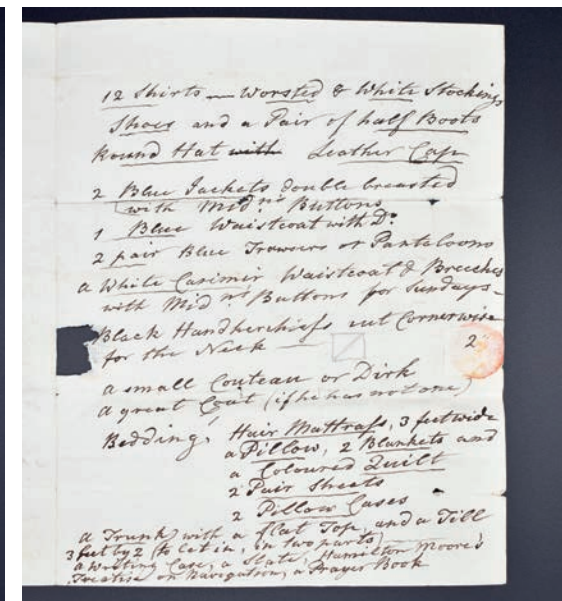 12 Shirts — Worsted & White Stockings
Shoes and a Pair of half Boots
Round Hat with Leather Cap
2 Blue Jackets double breasted
with Midns Buttons
1 Blue Waistcoat with Do
2 pair Blue Trowsers or Pantaloons
a White Casimir Waistcoat & Breeches
with Midns Buttons for Sundays—
Black Handkerchiefs cut Cornerwise
for the Neck — 2
a small Couteau or Dirk
a great Coat (if he has not one)
Bedding, Hair Mattrass, 3 feet wide
a Pillow, 2 Blankets and
a Coloured Quilt
2 Pair Sheets
2 Pillow Cases
a Trunk with a flat Top, and a Till
3 feet by 2 (to let in, in two parts)
a Writing Case, a Slate, Hamilton Moore's
Treatise on Navigation, a Prayer Book